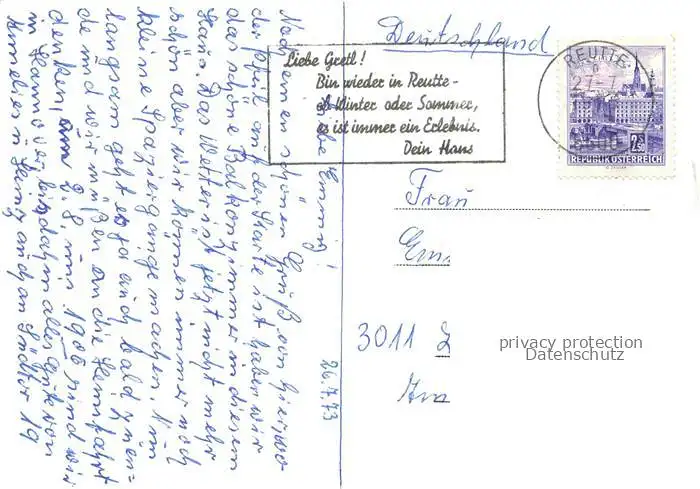 Deutschland
Liebe Gretl!
Bin wieder in Reutte-
ob Winter oder Sommer,
es ist immer ein Erlebnis.
Dein Hans
REUTTE
6600
2.50
REPUBLIK ÖSTERREICH
Frau
Em.
3011
privacy protection
Datenschutz
26.7.73
Liebe Emmy!
Noch einen schönen Gruß von hier, wo
der Pfeil auf der Karte ist haben wir
das schöne Balkonzimmer in diesem
Haus. Das Wetter ist jetzt nicht mehr
schön aber wir können immer noch
kleine Spaziergänge machen. Nun
langsam geht es ja auch bald zuen-
de und wir müßen an die Heimfahrt
denken, am 2.8. um 19 sind wir
in Hannover, bis dahin alles Gute von